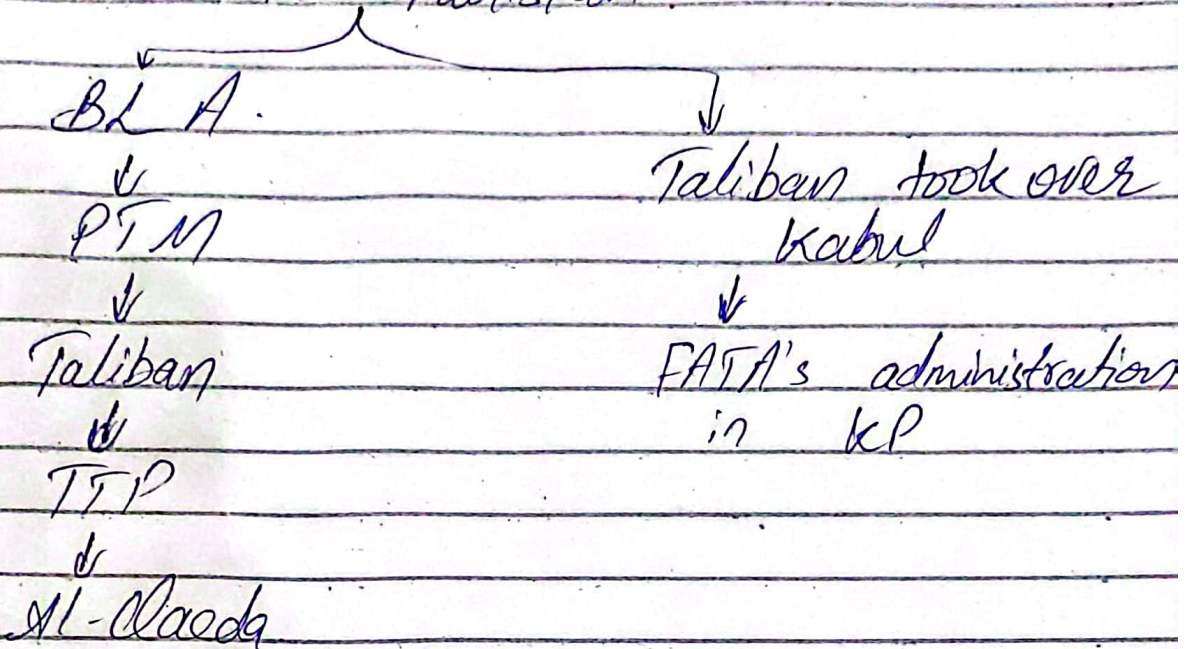 BLA.
PTM
Taliban
TTP
Al-Qaeda
Taliban took over
Kabul
FATA's administration
in KP